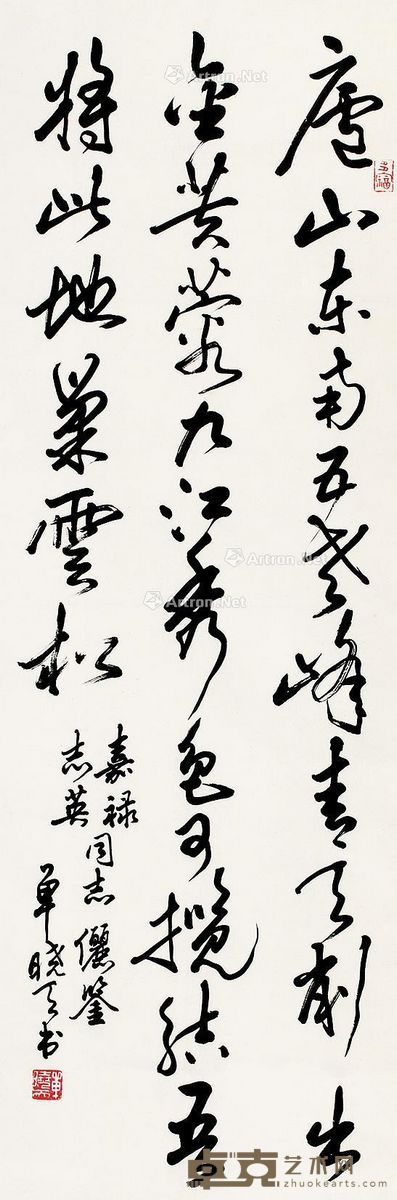 廬山東南五老峰青天削出
金芙蓉九江秀色可攬結吾
將此地巢雲松
嘉禄同志儷鑒
志英
單曉天書
Artron.Net
Artron.Net
Artron.Net
Artron.Net
卓克艺术网
www.zhuokearts.com